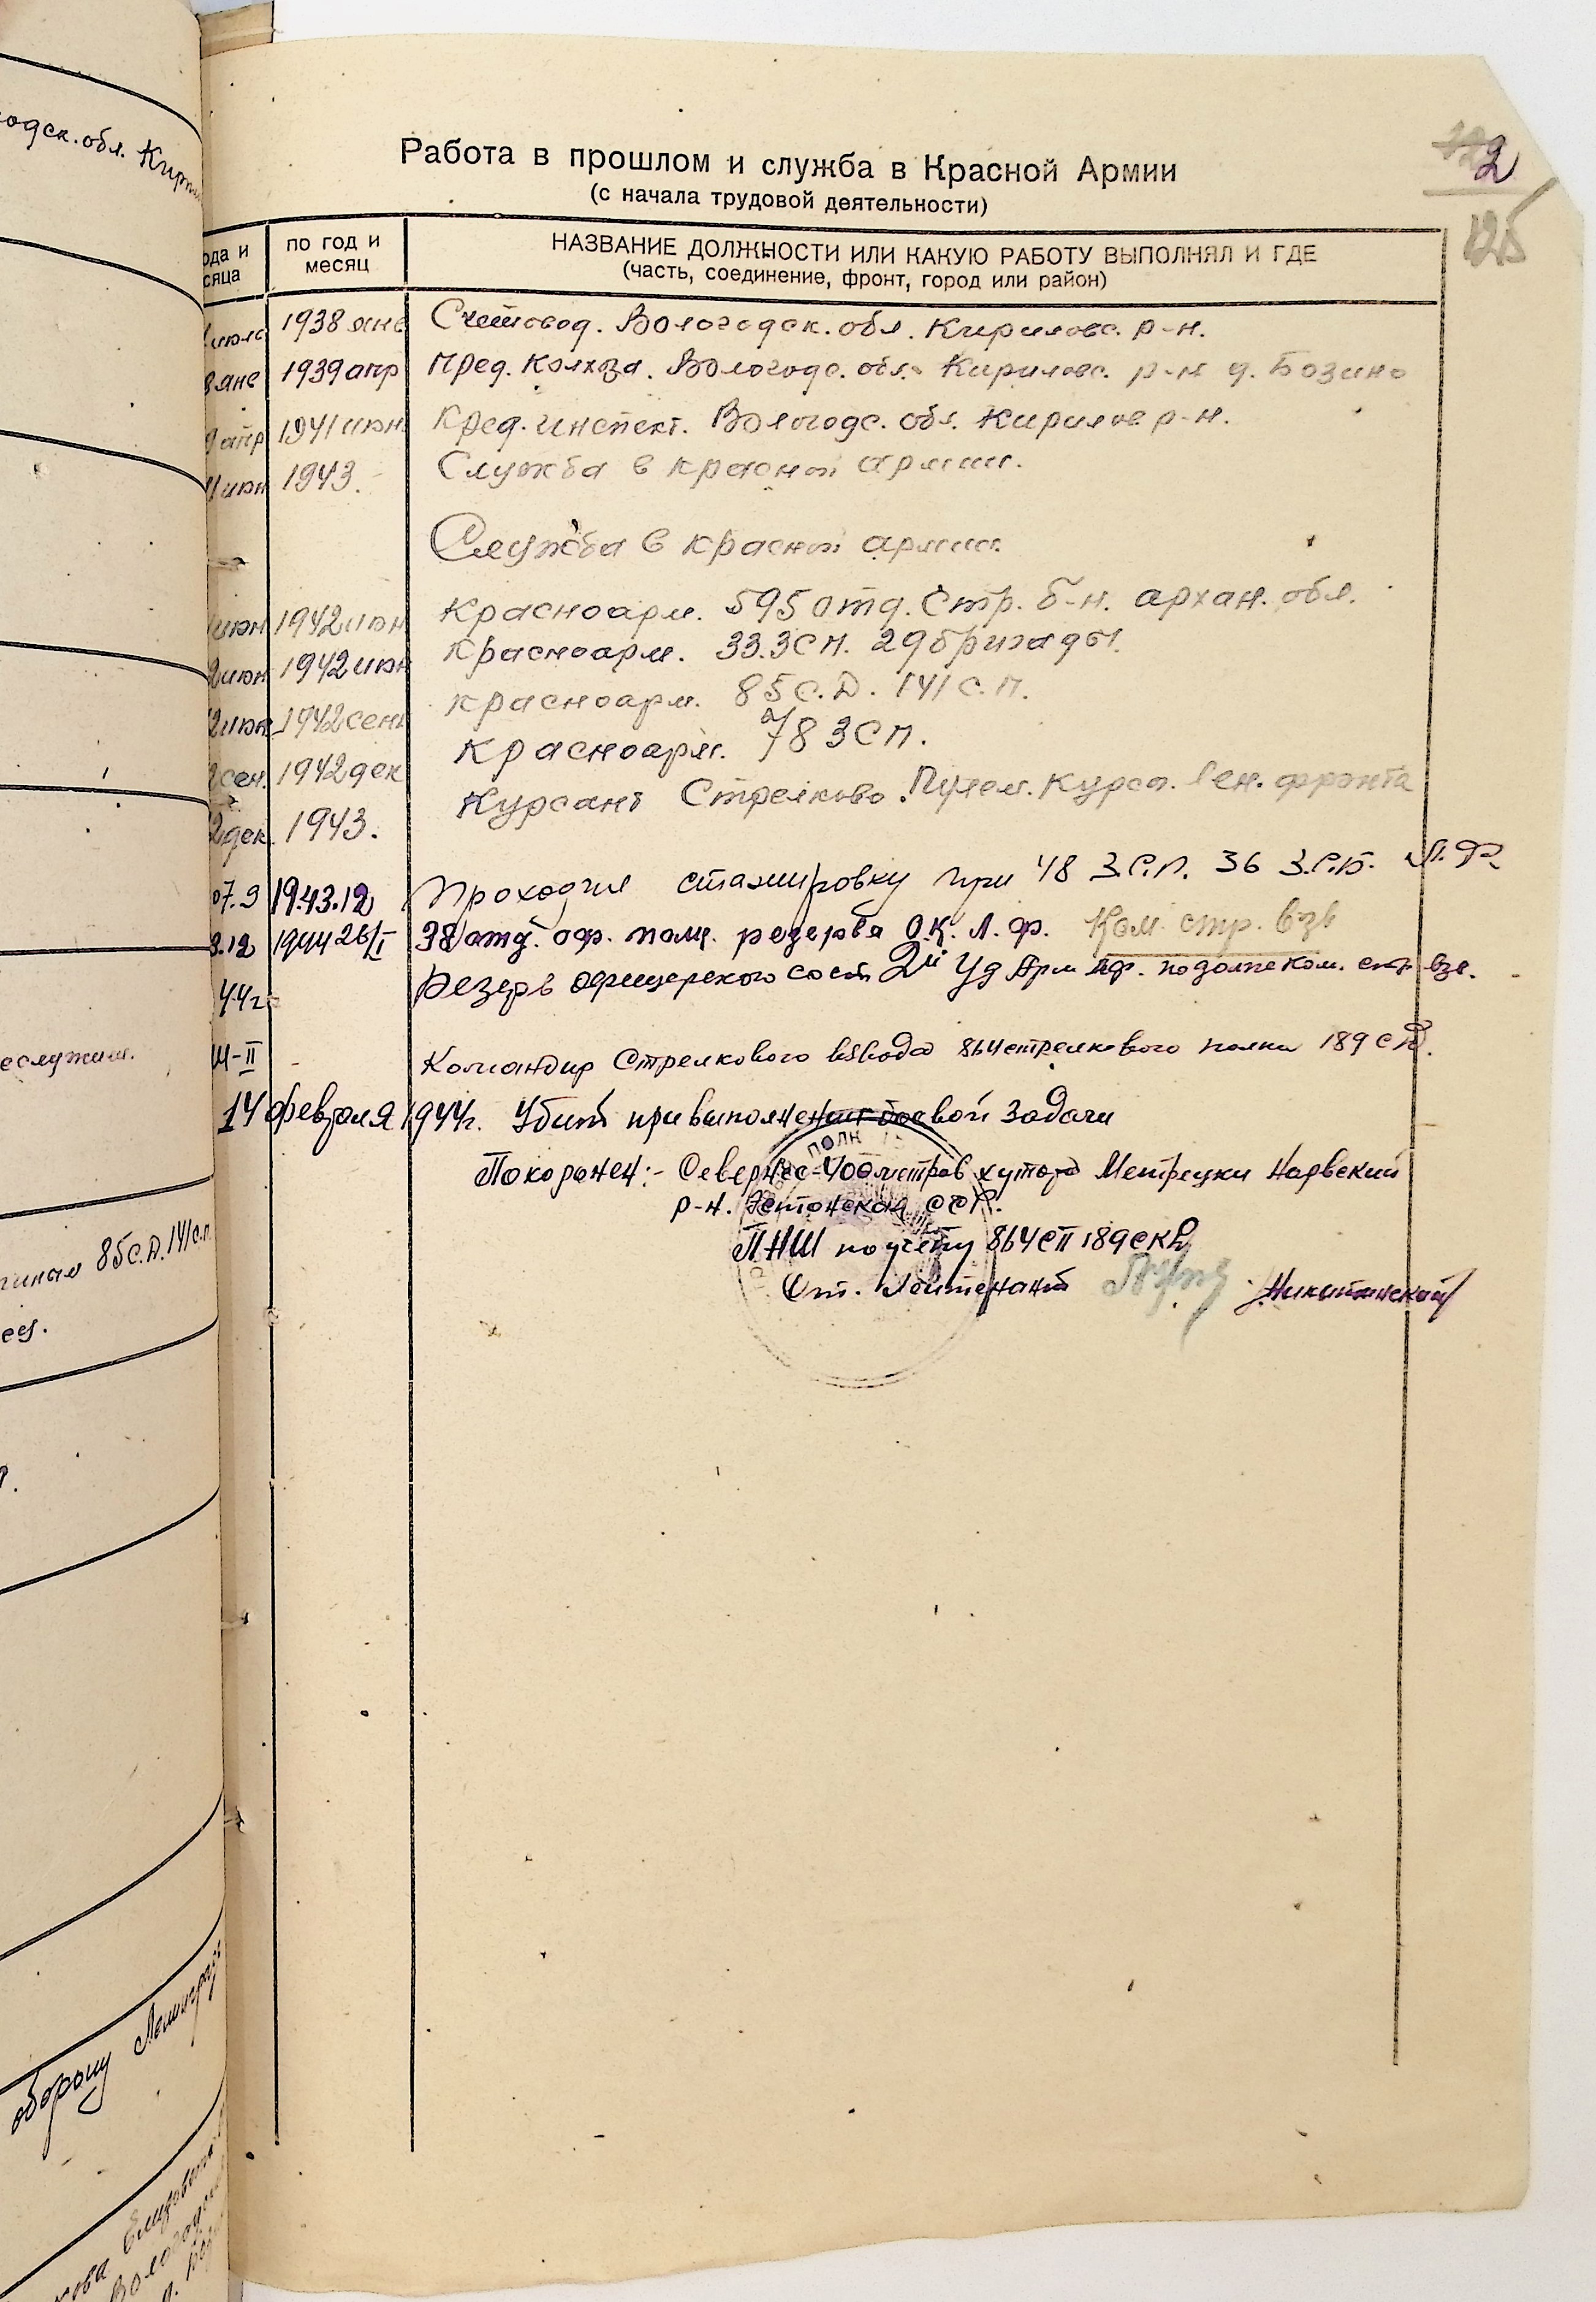 одск. обл. Кири
Работа в прошлом и служба в Красной Армии
(с начала трудовой деятельности)
2
125
ода и
сяца
по год и
месяц
НАЗВАНИЕ ДОЛЖНОСТИ ИЛИ КАКУЮ РАБОТУ ВЫПОЛНЯЛ И ГДЕ
(часть, соединение, фронт, город или район)
июль 1938 янв Счетовод. Вологодск. обл. Кирилловс. р-н.
8 янв 1939 апр Пред. Колхоза. Вологодс. обл. Кириловс. р-н д. Бозино
9 апр 1941 июн Кред. инспект. Вологодс. обл. Кирилов р-н.
1 июн 1943. Служба в красной армии.
Служба в красной армии.
июн 1942 июн Красноарм. 595 отд. Стр. б-н. архан. обл.
2 июн 1942 июн Красноарм. 33. ЗСП. 29 бригады.
2 июн 1942 сент Красноарм. 85 С.Д. 141 С.П.
сен. 1942 дек Красноарм. 78 ЗСП.
2 дек. 1943. Курсант Стрелково. Пулем. Курсов. Лен. фронта
07.9 1943.12 Проходил стажировку при 48 З.С.П. 36 З.С.Б. Л.Ф.
3.12 1944 26/I 38 отд. оф. полк. резерва О.К. Л.Ф. Ком. стр. взв
44г Резерв офицерского сост 2й Уд Арм ЛФ. по долж ком. стр взв.
44-II Командир Стрелкового взвода 864 стрелкового полка 189 СД.
14 февраля 1944г. Убит при выполнении боевой задачи
Похоронен:- Севернее-400 метров хутора Метрецки Нарвский
р-н. Эстонская ССР.
ПНШ по учету 864 СП 189 СКД
Ст. Лейтенант /Никитинский/
полк
еслужил.
85 С.Д. 141 с.п
оборону Ленинград